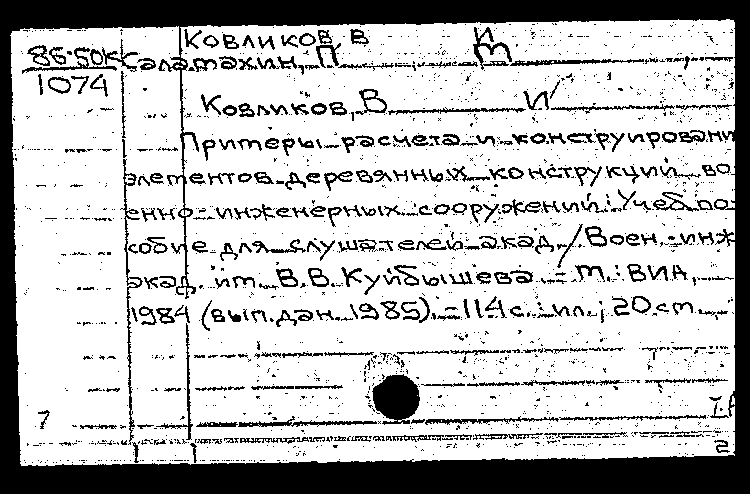 Ковликов, В И
86-50К Саламахин, П М
1074
Ковликов, В И
Примеры расчета и конструировани
элементов деревянных конструкций во
енно-инженерных сооружений: Учеб. по-
собие для слушателей акад. / Воен.-инж
акад. им. В.В. Куйбышева. - М.: ВИА,
1984 (вып. дан. 1985). - 114 с.: ил.; 20 см.
7
2